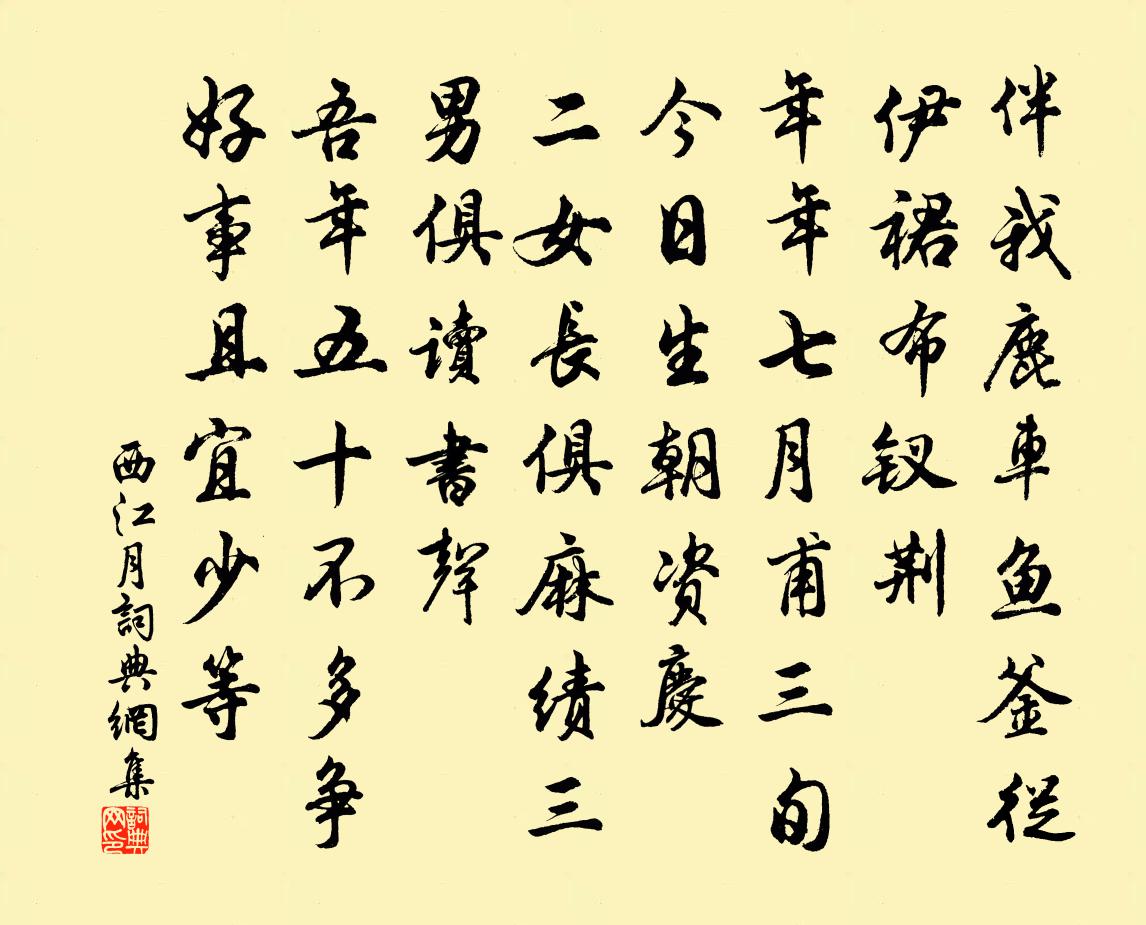 伴我鹿車鱼釜從
伊裙布钗荆
年年七月甫三旬
今日生朝资慶
二女長俱麻績三
男俱讀書聲
吾年五十不多争
好事且宜少等
西江月詞典網集
詞典网印